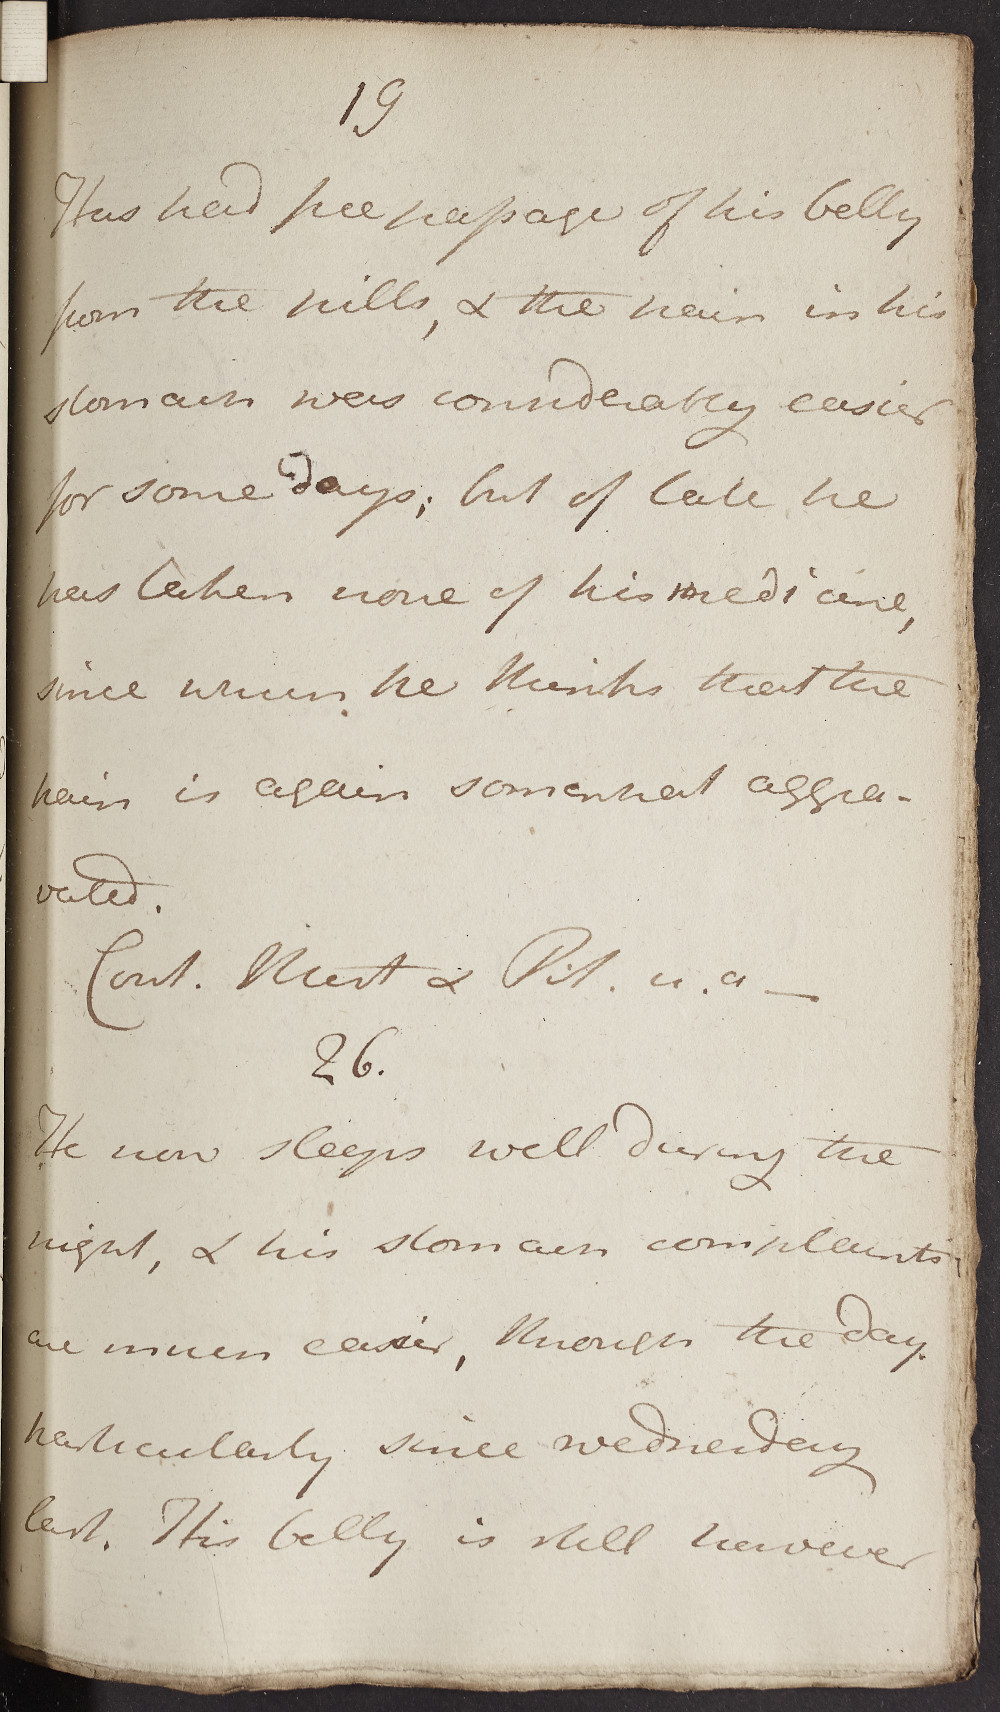 19
Has had free passage of his belly
from the pills, & the pain in his
stomach was considerably easier
for some days; but of late he
has taken none of his medicine,
since when he thinks that the
pain is again somewhat aggra-
vated.
Cont. & Pil. u. a —
26.
He now sleeps well during the
night, & his stomach complaints
are much easier, through the day.
particularly since wednesday
last. His belly is still however